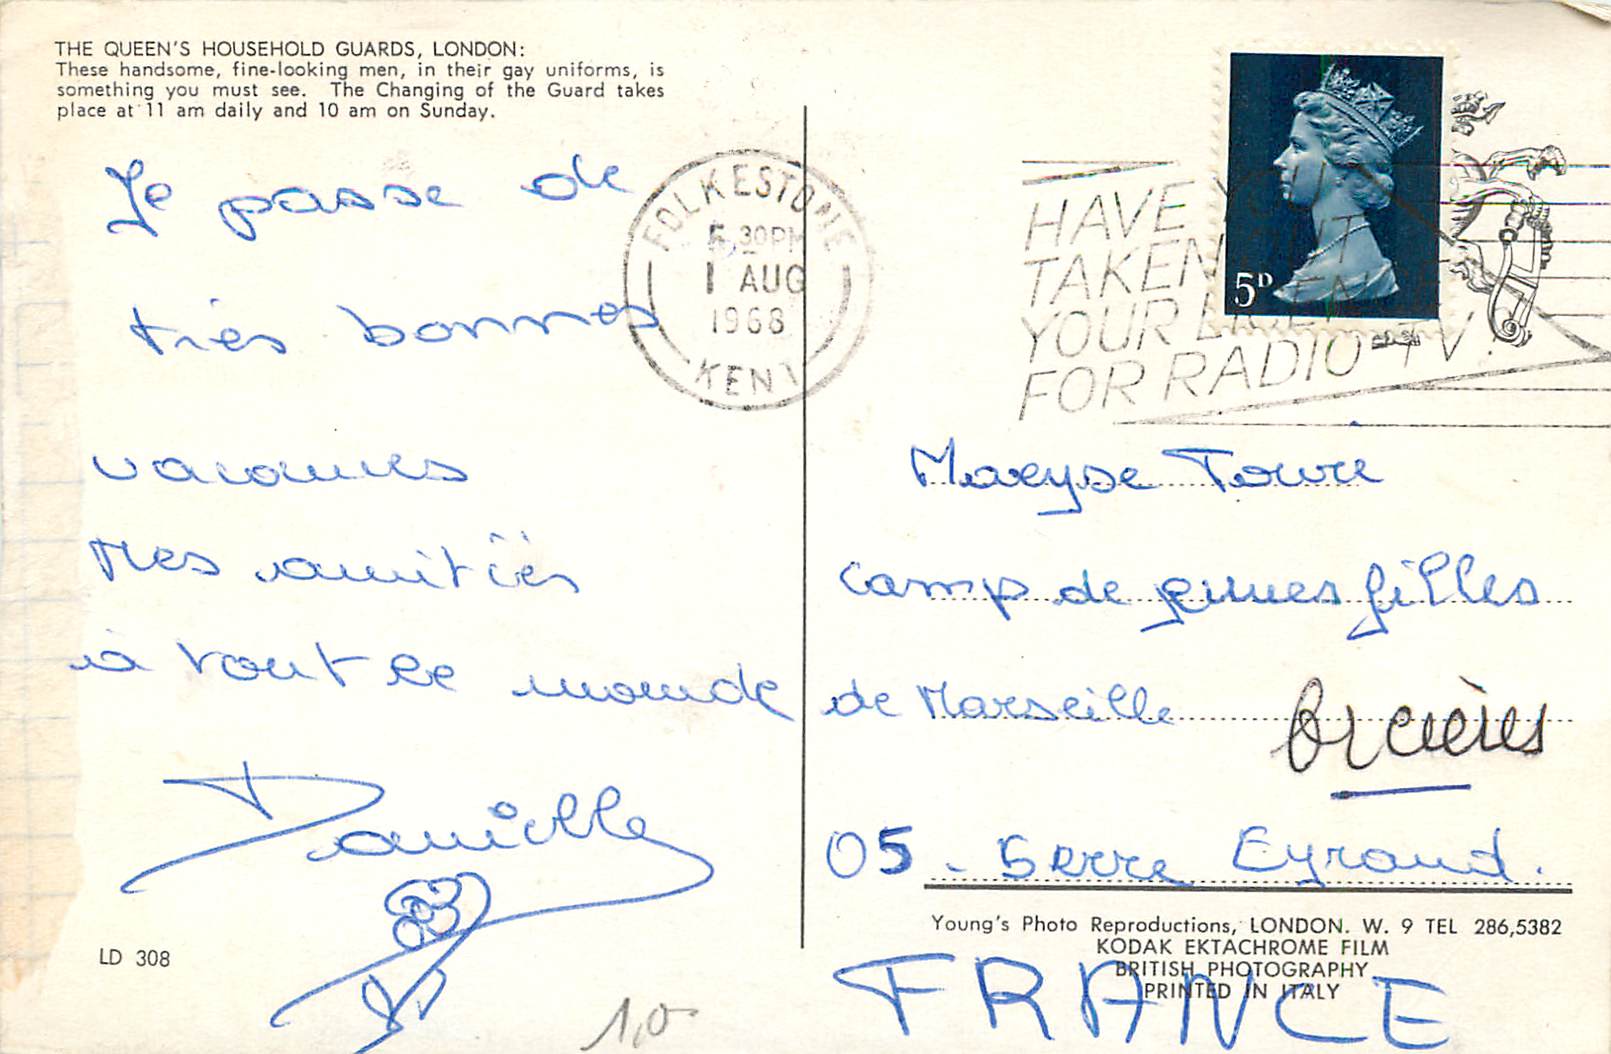 THE QUEEN'S HOUSEHOLD GUARDS, LONDON:
These handsome, fine-looking men, in their gay uniforms, is
something you must see. The Changing of the Guard takes
place at 11 am daily and 10 am on Sunday.
Je passe de
très bonnes
vacances
Mes amitiés
à tout le monde
Danielle
LD 308
1,0
FOLKESTONE
5.30PM
1 AUG
1968
KENT
HAVE YOU
TAKEN OUT
YOUR LICENCE
FOR RADIO-TV
5D
Maryse Tourre
camp de jeunes filles
de Marseille
Orcières
05 - Serre Eyraud.
Young's Photo Reproductions, LONDON. W. 9 TEL 286,5382
KODAK EKTACHROME FILM
BRITISH PHOTOGRAPHY
PRINTED IN ITALY
FRANCE